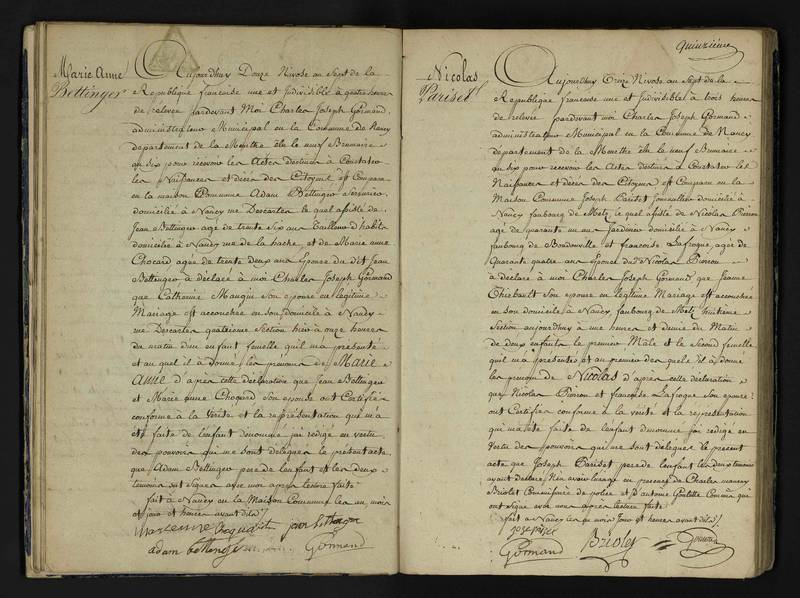 Marie Anne
Bettinger
Aujourdhuy Douze Nivose an Sept de la
Republique francoise une et Indivisible à quatre heures
de relevée pardevant Moi Charles Joseph Gormand
administrateur Municipal en la Commune de Nancy
département de la Meurthe élu le neuf Brumaire
an six pour recevoir les Actes destinés à Constater
les Naissances et décès des Citoyens est Comparu
en la maison Commune Adam Bettinger Serrurier
domicilié à Nancy rue Descartes le quel assisté de
Jean Bettinger age de trente six ans Tailleur d'habits
domicilié à Nancy rue de la hache, et de Marie anne
Chocard agée de trente deux ans Epouse du dit Jean
Bettinger à déclaré à moi Charles Joseph Gormand
que Catherine Maugin Son epouse en légitime
Mariage est accouchée en son domicile à Nancy
rue Descartes quatrieme Section hier à onze heures
du matin d'un enfant femelle quil m'a présenté
et au quel il à donné les prenoms de Marie
Anne d'apres cette déclaration que Jean Bettinger
et Marie anne Chocard Son epouse ont Certifié
conforme à la Verité et la représentation qui m'a
été faite de lenfant denommé jai redigé en vertu
des pouvoirs qui me sont délégués le present acte,
que Adam Bettinger pere de lenfant et les deux
temoins ont Signés avec moi apres lecture faite
fait à Nancy en la Maison Commune les an mois
et jour et heures avant dits
jean bettinger
adam bettinger
Gormand
quinzième
Nicolas
Pariset
Aujourdhuy Treize Nivose an Sept de la
Republique francoise une et Indivisible à trois heures
de relevée pardevant moi Charles Joseph Gormand
administrateur Municipal en la Commune de Nancy
département de la Meurthe élu le neuf Brumaire
an six pour recevoir les Actes destinés à Constater les
Naissances et décès des Citoyens est Comparu en la
Maison Commune Joseph Pariset domicilié à
Nancy faubourg de Metz le quel assisté de Nicolas Pierron
age de quarante un ans Jardinier domicilié à Nancy
faubourg de et francoise Lafrogne agée de
Quarante quatre ans Epouse du Nicolas Pierron
à déclaré à moi Charles Joseph Gormand que Jeanne
Thiebault Son epouse en légitime Mariage est accouchée
en son domicile à Nancy, faubourg de Metz huitieme
Section aujourdhuy à une heures et demie du Matin
de deux enfants le premier Male et le Second femelle
quil m'a présentés et au premier des quels il à donné
les prenom de Nicolas d'apres cette déclaration
que Nicolas Pierron et francoise Lafrogne Son epouse
ont Certifiés conforme à la verité et la representation
qui m'a été faite de lenfant denommé jai redigé en
Vertu des pouvoirs qui me sont délégués le present
acte que Joseph Pariset pere de lenfant les deux temoins
ayant déclaré Nen avoir lusage en presence de Charles
Briolet Commissaire de police et d'antoine Commis qui
ont Signé avec moi apres lecture faite
fait à Nancy les an mois Jour et heures avant dits
Gormand
Briolet